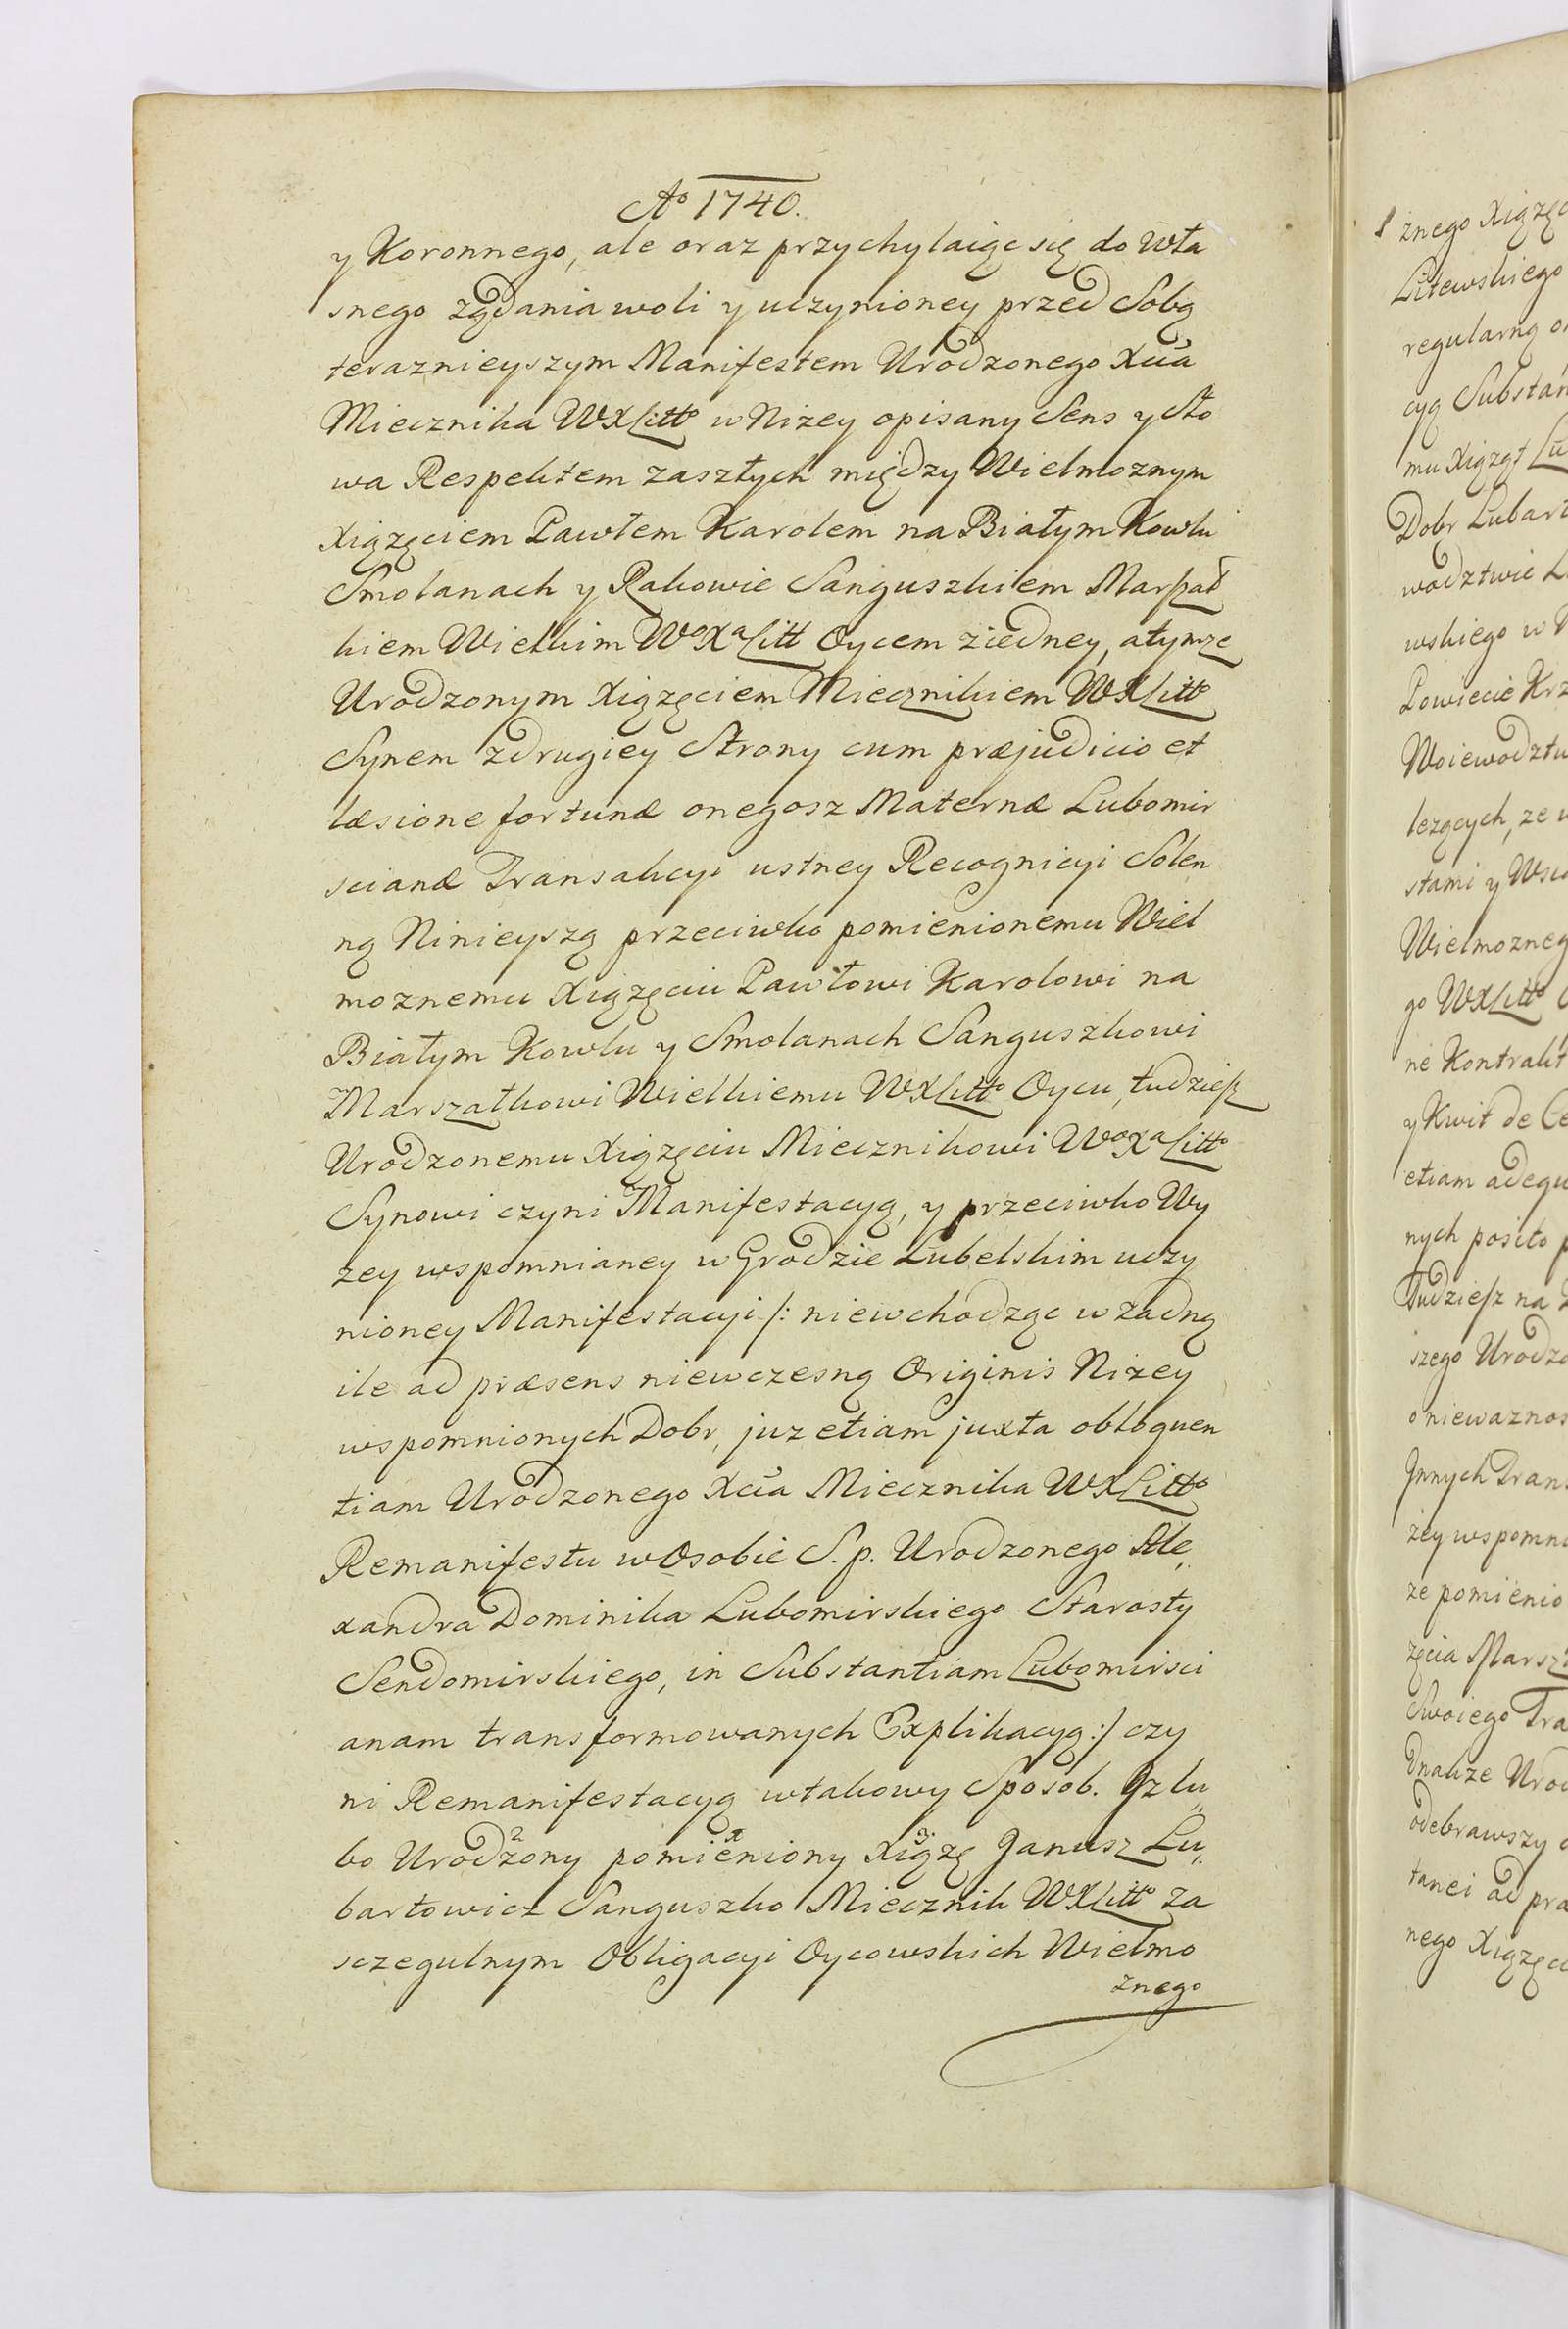 Ao 1740.
y Koronnego, ale oraz przychylaiąc się do Wła
snego ządania woli y uczynioney przed Sobą
teraznieyszym Manifestem Urodzonego Xcia
Miecznika WXLitto w Nizey opisany Sens y Sło
wa Respektem zaszłych między Wielmoznym
Xiązęciem Pawłem Karolem na Białym Kowlu
Smolanach y Rakowie Sanguszkiem Marszał
kiem Wielkim WoXaLitt Oycem ziedney, atymze
Urodzonym Xiązęciem Miecznikiem WXLitto
Synem zdrugiey Strony cum præjudicio et
læsione fortunæ onegosz Maternæ Lubomir
scianæ Transakcyi ustney Recognicyi Solen
ną Ninieyszą przeciwko pomienionemu Wiel
moznemu Xiązęciu Pawłowi Karolowi na
Białym Kowlu y Smolanach Sanguszkowi
Marszałkowi Wielkiemu WXLitto Oycu, tudziesz
Urodzonemu Xiązęciu Miecznikowi WoXaLitto
Synowi czyni Manifestacyą, y przeciwko Wy
zey wspomnianey w Grodzie Lubelskim uczy
nioney Manifestacyi /: niewchodząc w zadną
ile ad præsens niewczesną Originis Nizey
wspomnionych Dobr, juz etiam juxta obloquen
tiam Urodzonego Xcia Miecznika WXLitto
Remanifestu w Osobie S. p. Urodzonego Ale
xandra Dominika Lubomirskiego Starosty
Sendomirskiego, in Substantiam Lubomirsci
anam transformowanych Explikacyą :/ czy
ni Remanifestacyą wtakowy Sposob. Jz lu
bo Urodzony pomieniony Xiązę Janusz Lu
bartowicz Sanguszko Miecznik WXLitto za
sczegulnym Obligacyi Oycowskich Wielmo
znego
1 znego Xiązęc
Litewskiego
regularną
cyą Substan
mu Xiąząt Lu
Dobr Lubart
wodztwie L
wskiego w
Powiecie Krz
Woiewodztw
lezących, ze
stami y Wsi
Wielmozneg
go WXLitto
ne Kontrakt
y Kwit de
etiam adequ
nych posito
Tudziesz na
szego Urodzo
o niewaznos
Jnnych Trans
zey wspomn
ze pomienio
zęcia Marsz
Swoiego Tra
Jnakze Urod
odebrawszy
tanci ad pra
nego Xiązęc